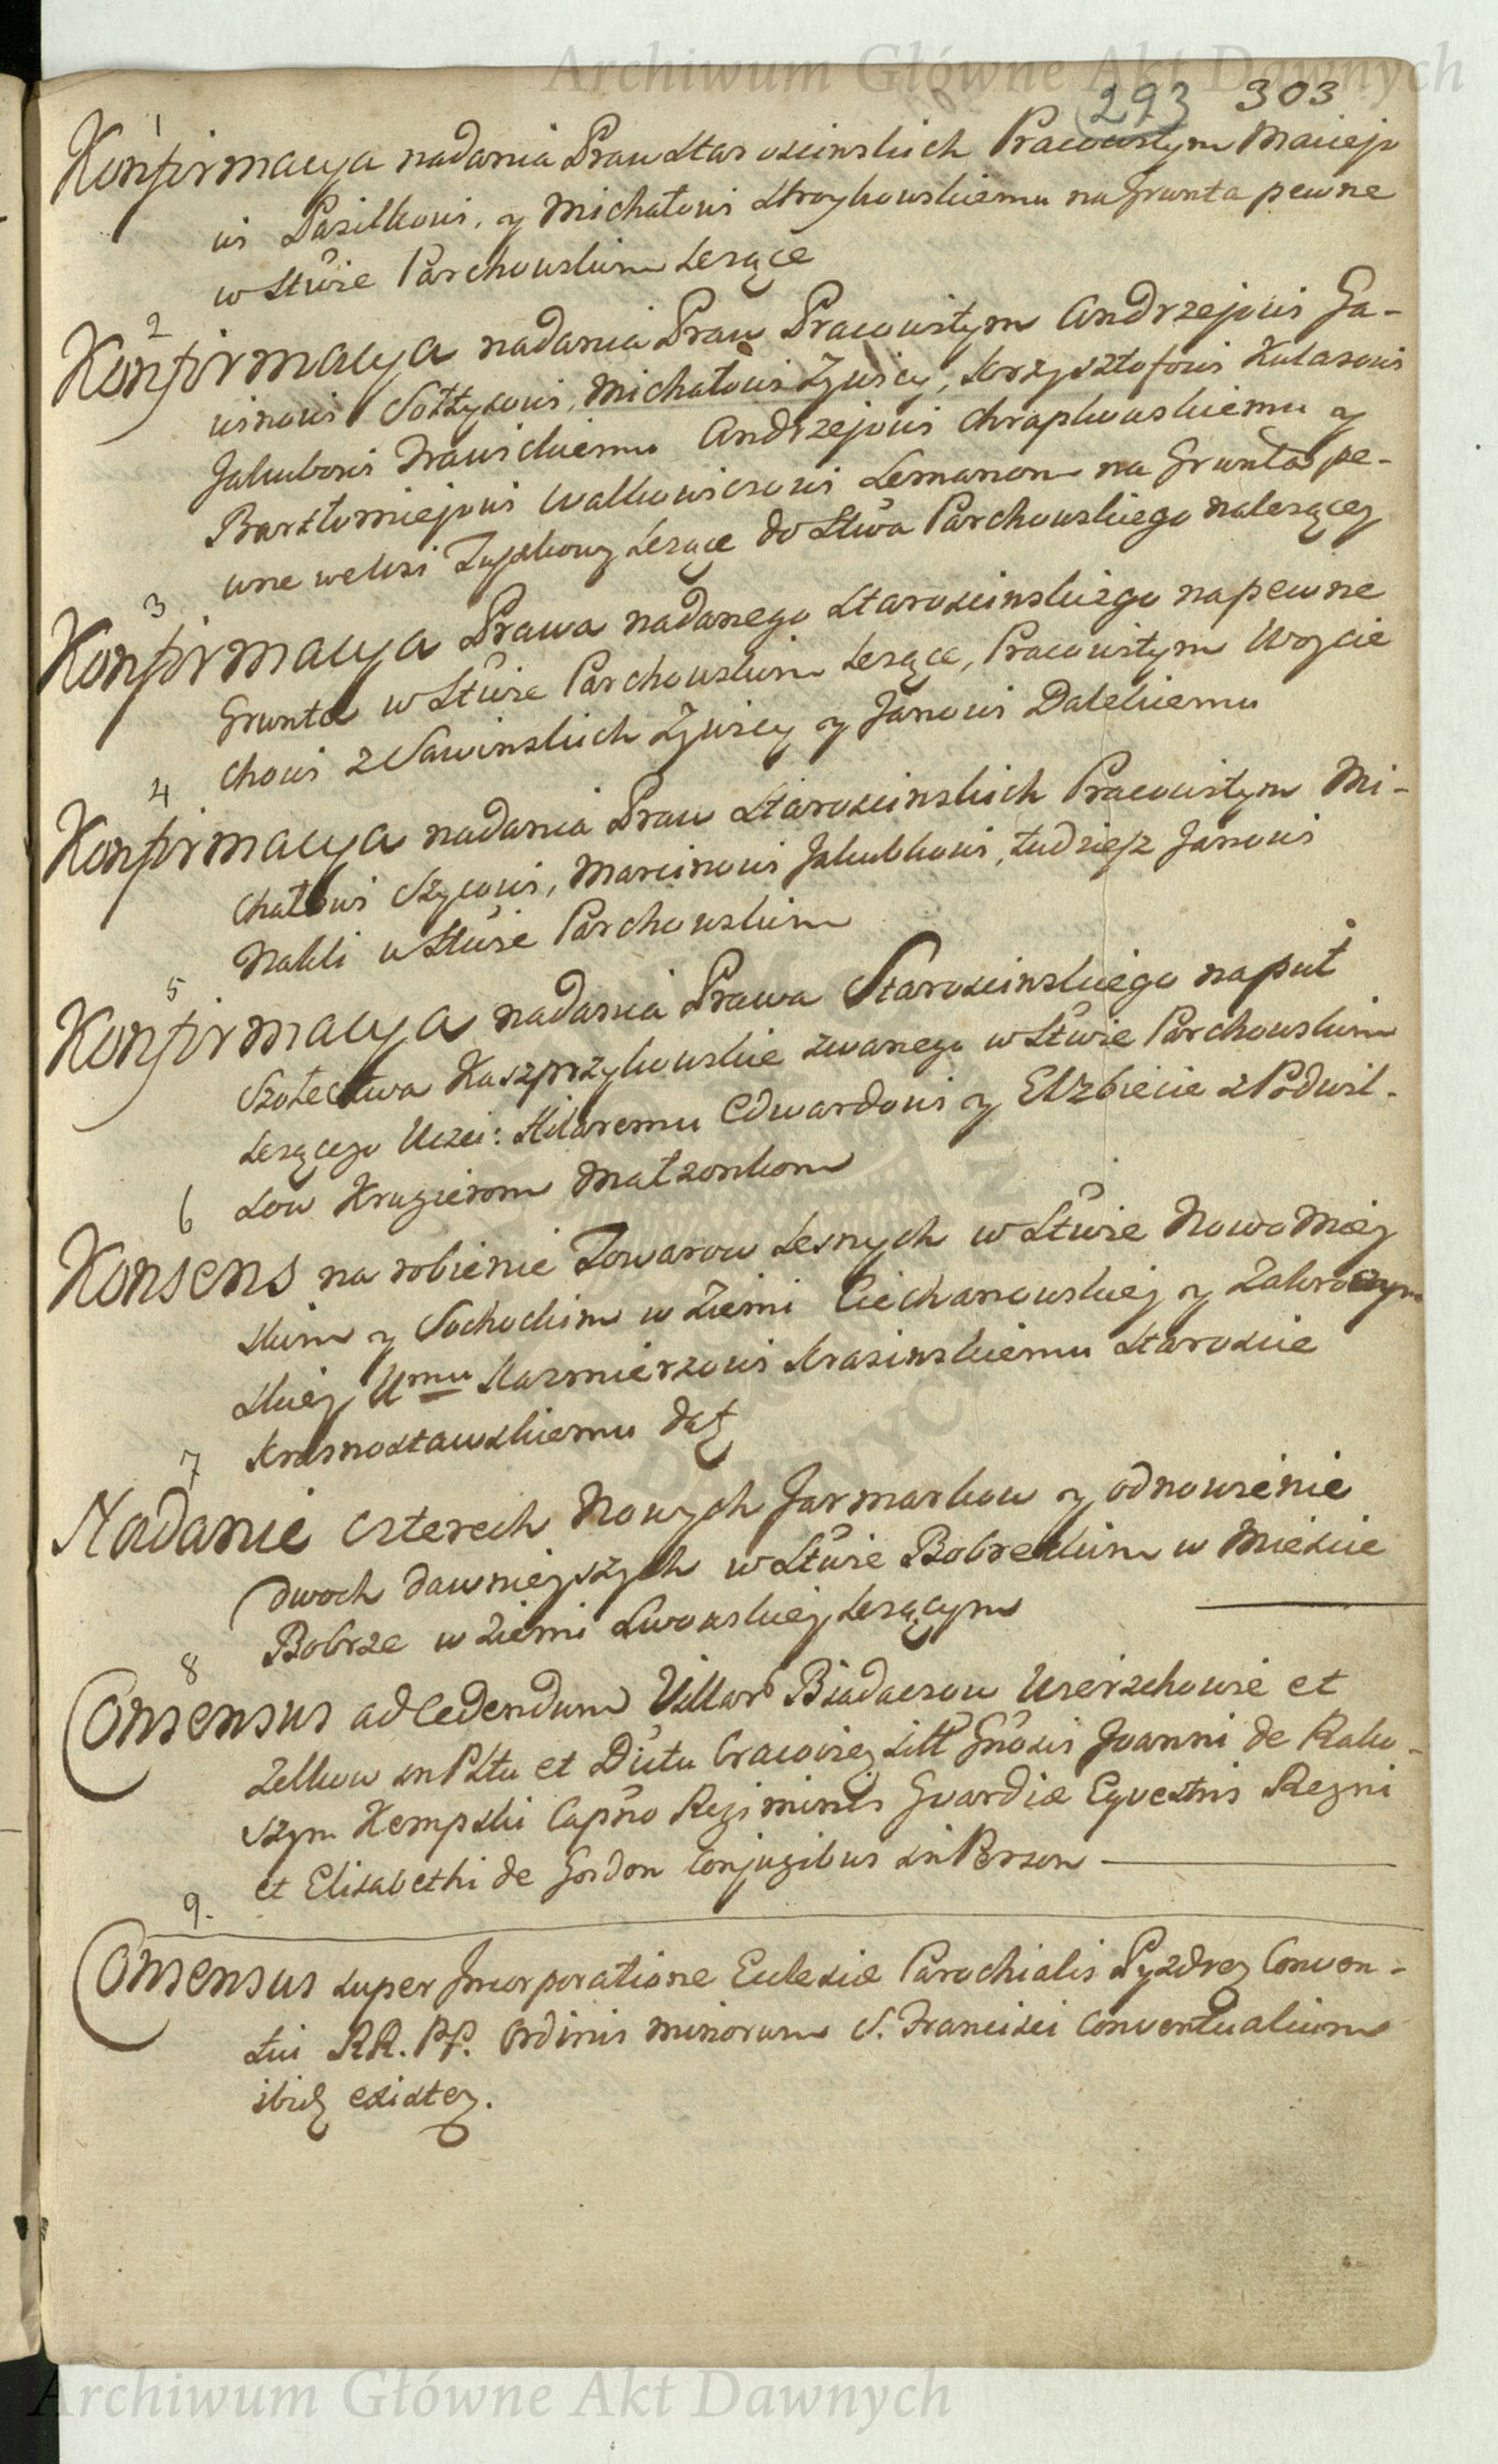 Archiwum Główne Akt Dawnych
293 303
1
Konfirmacya nadania Praw Starościnskich Pracowitym Maciejo
wi Pazilkowi, y Michałowi Strzykowskiemu na Grunta pewne
w Stwie Parchowskim Lezące
2
Konfirmacya nadania Praw Pracowitym Andrzejowi Ga-
winowi Sołtysowi, Michałowi Żywicy, Krzysztofowi Kulasowi
Jakubowi Trawickiemu Andrzejowi Chrapkowskiemu y
Bartłomiejowi Walkowiczowi Lemanom na Grunta pe-
wne we Wsi Lezące do Stwa Parchowskiego nalezącey
3
Konfirmacya Prawa nadanego Starościnskiego na pewne
Grunta w Stwie Parchowskim Lezące, Pracowitym Woycie
chowi z Sawinskich Żywicy y Janowi Dalekiemu
4
Konfirmacya nadania Praw Starościnskich Pracowitym Mi-
chałowi Szycowi, Marcinowi Jakubkowi, tudziesz Janowi
Nakli w Stwie Parchowskim
5
Konfirmacya nadania Prawa Starościnskiego na puł
Szołectwa Kaszprzykowskie zwanego w Stwie Parchowskim
Lezącego Uczci: Hilaremu Edwardowi y Elzbiecie z Podwil-
low Krugierom Małzonkom
6
Konsens na robienie Towarow Lesnych w Stwie Nowo Miey
skim y Sochockim w Ziemi Ciechanowskiey y Zakroczym
skiey Umu Kazmierzowi Krasinskiemu Staroscie
Krasnostawskiemu dat
7
Nadanie czterech Nowych Jarmarkow y odnowienie
dwoch dawnieyszych w Stwie Bobreckim w Miescie
Bobrze w Ziemi Lwowskiey Lezącym
8
Consensus ad cedendum Villas Biadaczow Wierzchowie et
Zelkow in Pttu et Dictu Cracovien sitt Gnosis Joanni de Rako-
szyn Kempski Capno Regiminis Gvardiæ Eqvestris Regni
et Elisabethi de Gordon Conjugibus in Person
9.
Consensus super Incorporatione Ecclesiæ Parochialis Pyzdren Conven-
tui RR. PP. Ordinis Minorum S. Francisci Conventualium
ibid existen.
Archiwum Główne Akt Dawnych